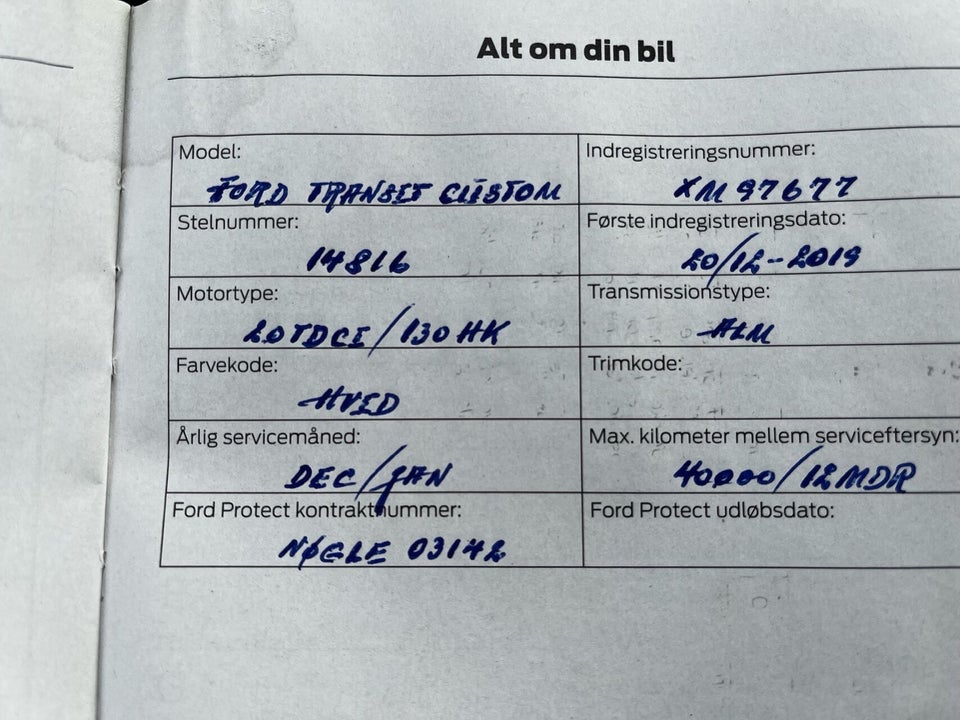 Alt om din bil
Model:
FORD TRANSIT CUSTOM
Indregistreringsnummer:
XM 97677
Stelnummer:
14816
Første indregistreringsdato:
20/12-2019
Motortype:
20TDCI/130 HK
Transmissionstype:
ALM
Farvekode:
HVID
Trimkode:
Årlig servicemåned:
DEC/JAN
Max. kilometer mellem serviceftersyn:
40000/12 MDR
Ford Protect kontraktnummer:
NØGLE 03142
Ford Protect udløbsdato: